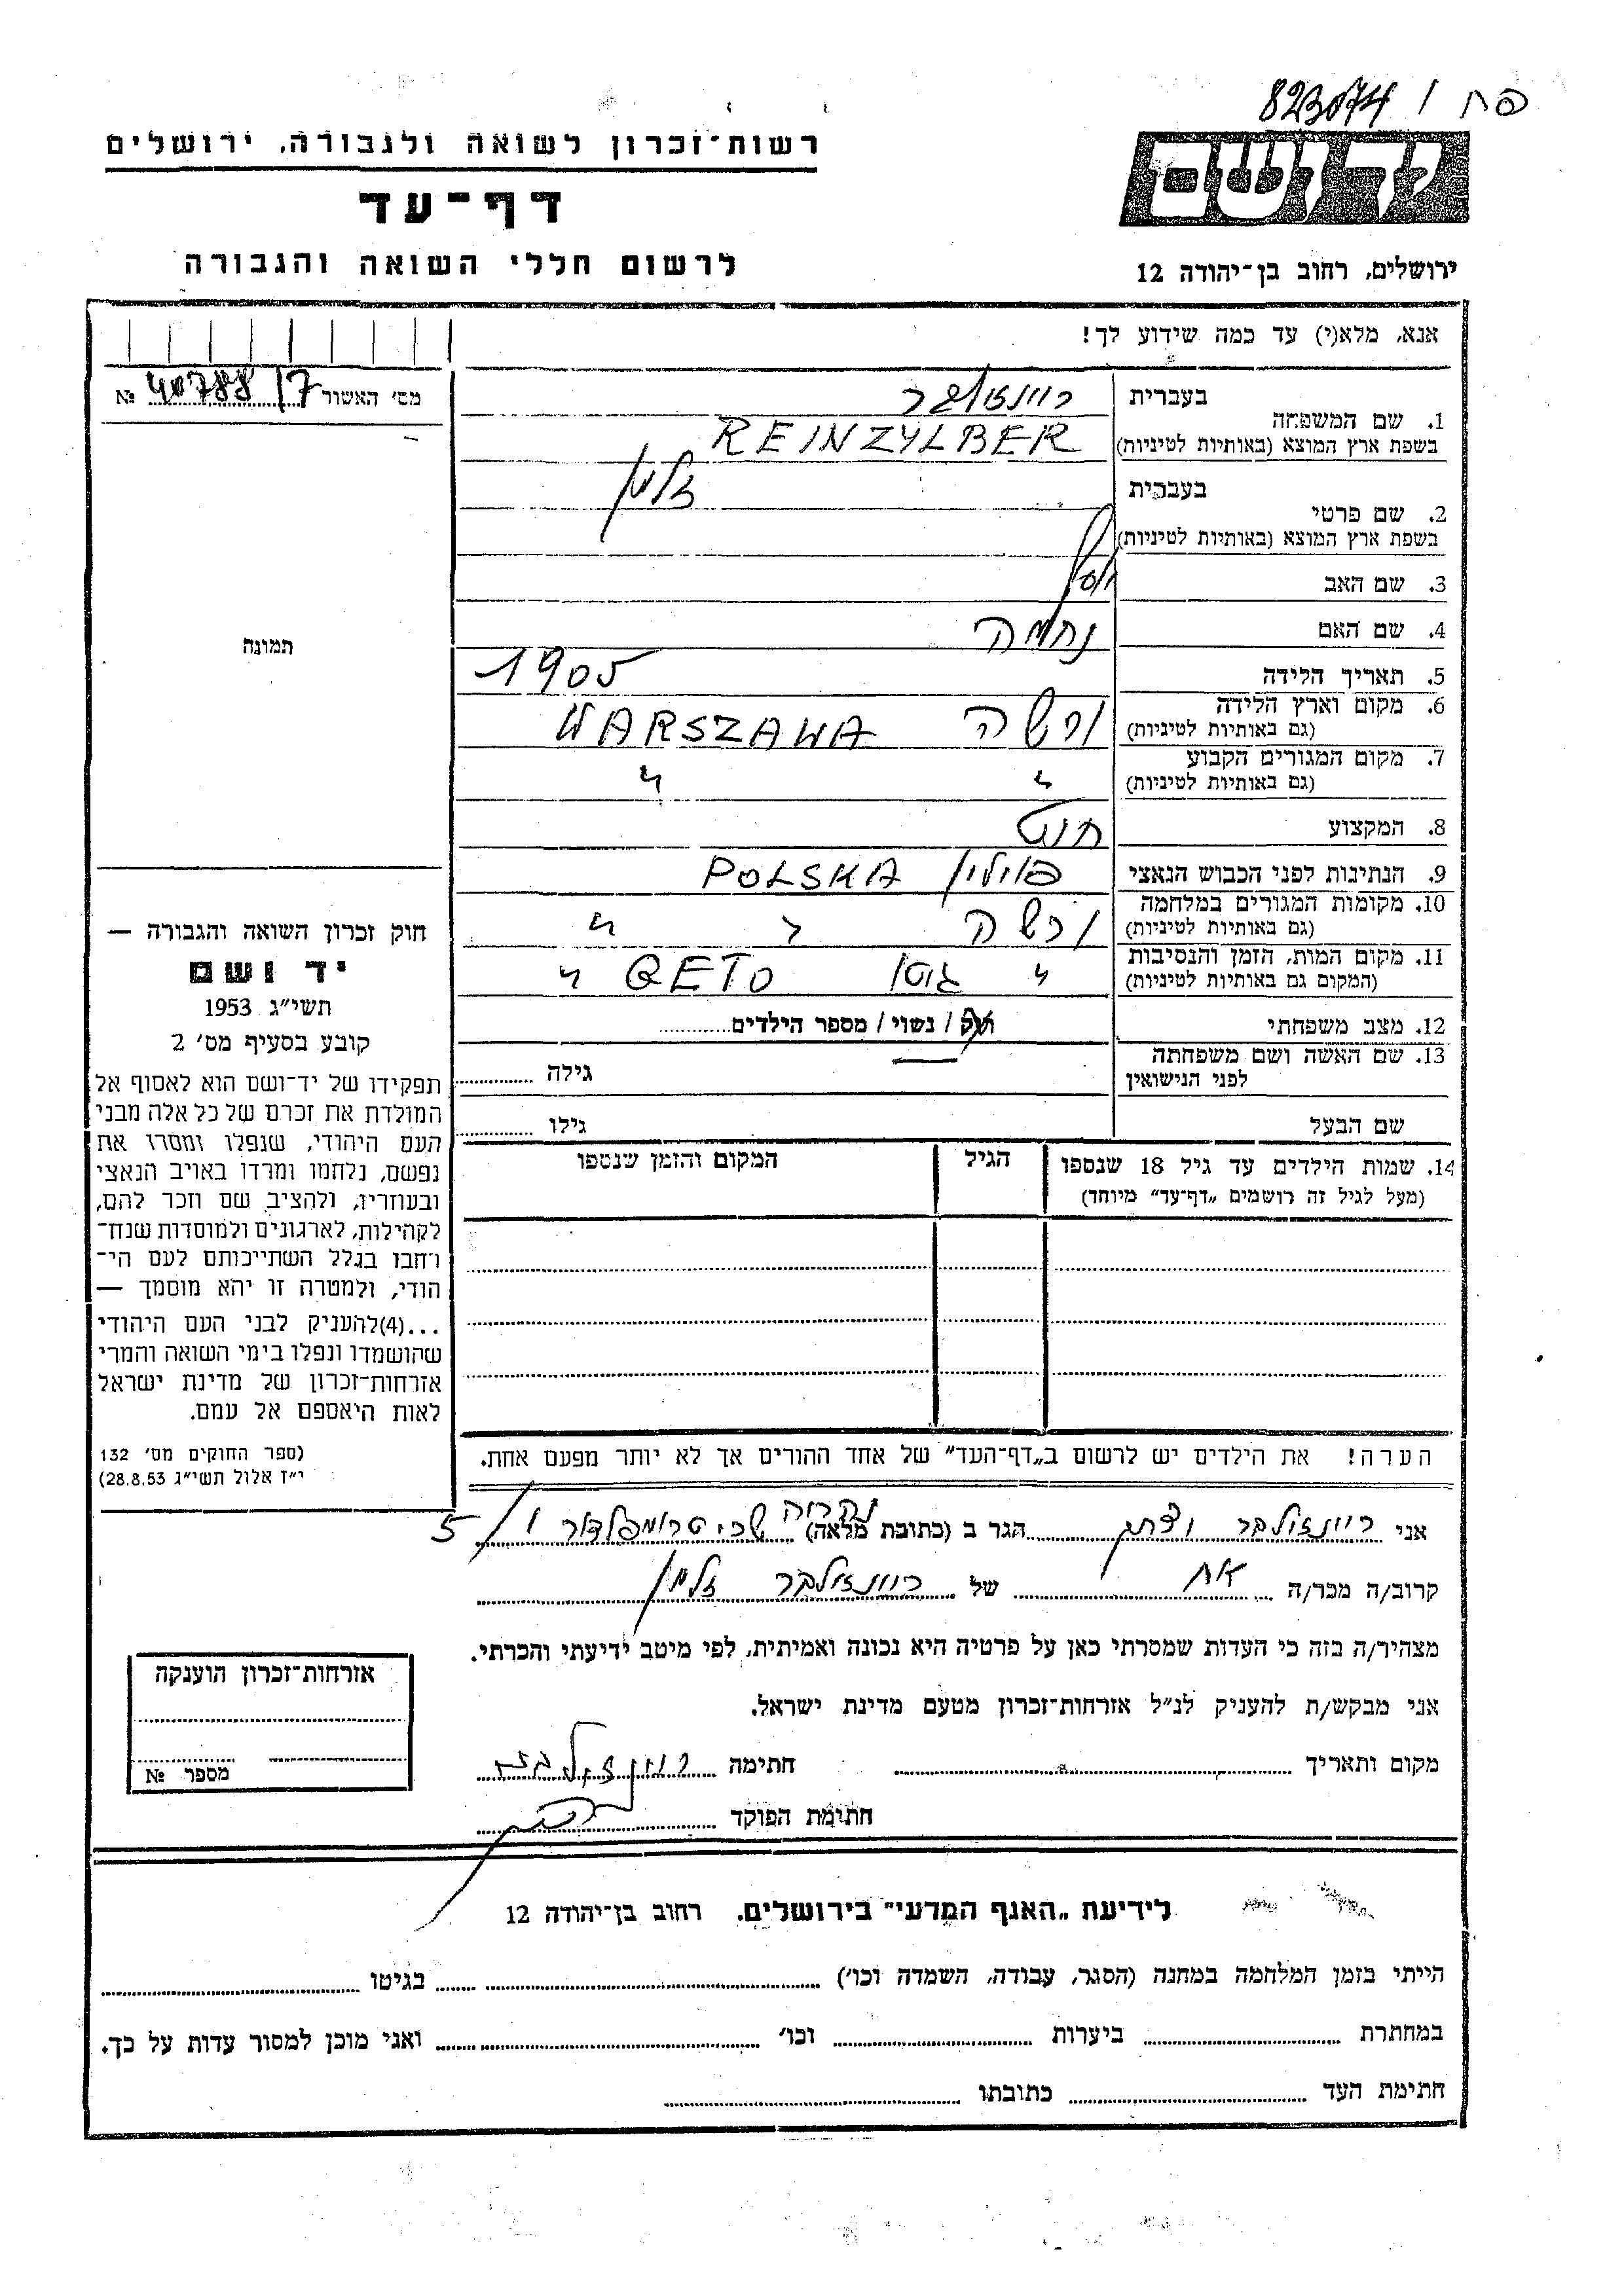 פח / 823074
יד ושם
רשות־זכרון לשואה ולגבורה, ירושלים
דף־עד
לרשום חללי השואה והגבורה
ירושלים, רחוב בן־יהודה 12
אנא, מלא(י) עד כמה שידוע לך!
מס׳ האשור № 40788/7
1. שם המשפחה
בעברית
ריינזילבר
בשפת ארץ המוצא (באותיות לטיניות)
REINZYLBER
2. שם פרטי
בעברית
זלמן
בשפת ארץ המוצא (באותיות לטיניות)
3. שם האב יוסף
4. שם האם נחמה
5. תאריך הלידה 1905
6. מקום וארץ הלידה
(גם באותיות לטיניות)
ורשה WARSZAWA
7. מקום המגורים הקבוע
(גם באותיות לטיניות)
" "
8. המקצוע חייט
9. הנתינות לפני הכבוש הנאצי פולין POLSKA
10. מקומות המגורים במלחמה
(גם באותיות לטיניות)
ורשה " "
11. מקום המות, הזמן והנסיבות
(המקום גם באותיות לטיניות)
" גטו GETO "
12. מצב משפחתי רוק / נשוי / מספר הילדים
13. שם האשה ושם משפחתה
לפני הנישואין
גילה
שם הבעל גילו
14. שמות הילדים עד גיל 18 שנספו
(מעל לגיל זה רושמים „דף־עד” מיוחד)
הגיל
המקום והזמן שנספו
הערה! את הילדים יש לרשום ב„דף־העד” של אחד ההורים אך לא יותר מפעם אחת.
תמונה
חוק זכרון השואה והגבורה —
יד ושם
תשי״ג 1953
קובע בסעיף מס׳ 2
תפקידו של יד־ושם הוא לאסוף אל
המולדת את זכרם של כל אלה מבני
העם היהודי, שנפלו ומסרו את
נפשם, נלחמו ומרדו באויב הנאצי
ובעוזריו, ולהציב שם וזכר להם,
לקהילות, לארגונים ולמוסדות שנח־
רחבו בגלל השתייכותם לעם הי־
הודי, ולמטרה זו יהא מוסמך —
...(4)להעניק לבני העם היהודי
שהושמדו ונפלו בימי השואה והמרי
אזרחות־זכרון של מדינת ישראל
לאות היאספם אל עמם.
(ספר החוקים מס׳ 132
י״ז אלול תשי״ג 28.8.53)
אני ריינזילבר הגר ב (כתובת מלאה) נהריה שכ׳ טרומפלדור 5/1
קרוב/ה מכר/ה אח של ריינזילבר זלמן
מצהיר/ה בזה כי העדות שמסרתי כאן על פרטיה היא נכונה ואמיתית, לפי מיטב ידיעתי והכרתי.
אני מבקש/ת להעניק לנ״ל אזרחות־זכרון מטעם מדינת ישראל.
מקום ותאריך חתימה ריינזילבר
חתימת הפוקד
אזרחות־זכרון הוענקה
מספר №
לידיעת „האגף המדעי” בירושלים. רחוב בן־יהודה 12
הייתי בזמן המלחמה במחנה (הסגר, עבודה, השמדה וכו׳) בגיטו
במחתרת ביערות וכו׳ ואני מוכן למסור עדות על כך.
חתימת העד כתובתו